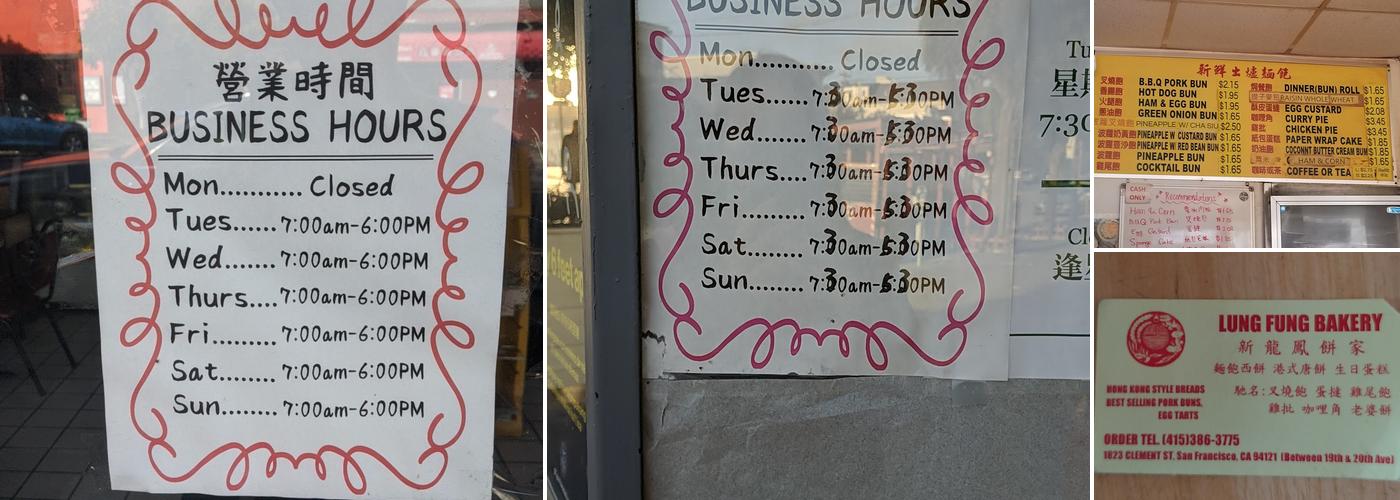 營業時間
BUSINESS HOURS
Mon........... Closed
Tues...... 7:00am-6:00PM
Wed....... 7:00am-6:00PM
Thurs.... 7:00am-6:00PM
Fri......... 7:00am-6:00PM
Sat........ 7:00am-6:00PM
Sun........ 7:00am-6:00PM
BUSINESS HOURS
Mon........... Closed
Tues...... 7:30am-5:30PM
Wed....... 7:30am-5:30PM
Thurs.... 7:30am-5:30PM
Fri......... 7:30am-5:30PM
Sat........ 7:30am-5:30PM
Sun........ 7:30am-5:30PM
Tu
星期
7:30
Cl
6 feet ap
新鮮出爐麵飽
叉燒飽 B.B.Q PORK BUN $2.15
香腸飽 HOT DOG BUN $1.95
火腿飽 HAM & EGG BUN $1.95
葱油飽 GREEN ONION BUN $1.65
PINEAPPLE W/ CHA SIU $2.50
波蘿奶黃飽 PINEAPPLE W CUSTARD BUN $1.65
波蘿豆沙飽 PINEAPPLE W RED BEAN BUN $1.65
波蘿飽 PINEAPPLE BUN $1.65
雞尾飽 COCKTAIL BUN $1.65
焗餐飽 DINNER(BUN) ROLL $1.65
RAISIN WHOLE WHEAT $1.65
酥皮蛋撻 EGG CUSTARD $2.08
咖喱角 CURRY PIE $3.45
雞批 CHICKEN PIE $3.45
紙包蛋糕 PAPER WRAP CAKE $1.85
奶油飽 COCONNT BUTTER CREAM BUN $1.85
HAM & CORN $1.65
咖啡或茶 COFFEE OR TEA
CASH
ONLY
Recommendations
Ham & Corn
BBQ Pork Bun 叉燒飽
Egg Custard 蛋撻
Sponge Cake
LUNG FUNG BAKERY
新龍鳳餅家
麵飽西餅 港式唐餅 生日蛋糕
HONG KONG STYLE BREADS
BEST SELLING PORK BUNS,
EGG TARTS
馳名:叉燒飽 蛋撻 雞尾飽
雞批 咖哩角 老婆餅
ORDER TEL. (415)386-3775
1823 CLEMENT ST. San Francisco, CA 94121 (Between 19th & 20th Ave)